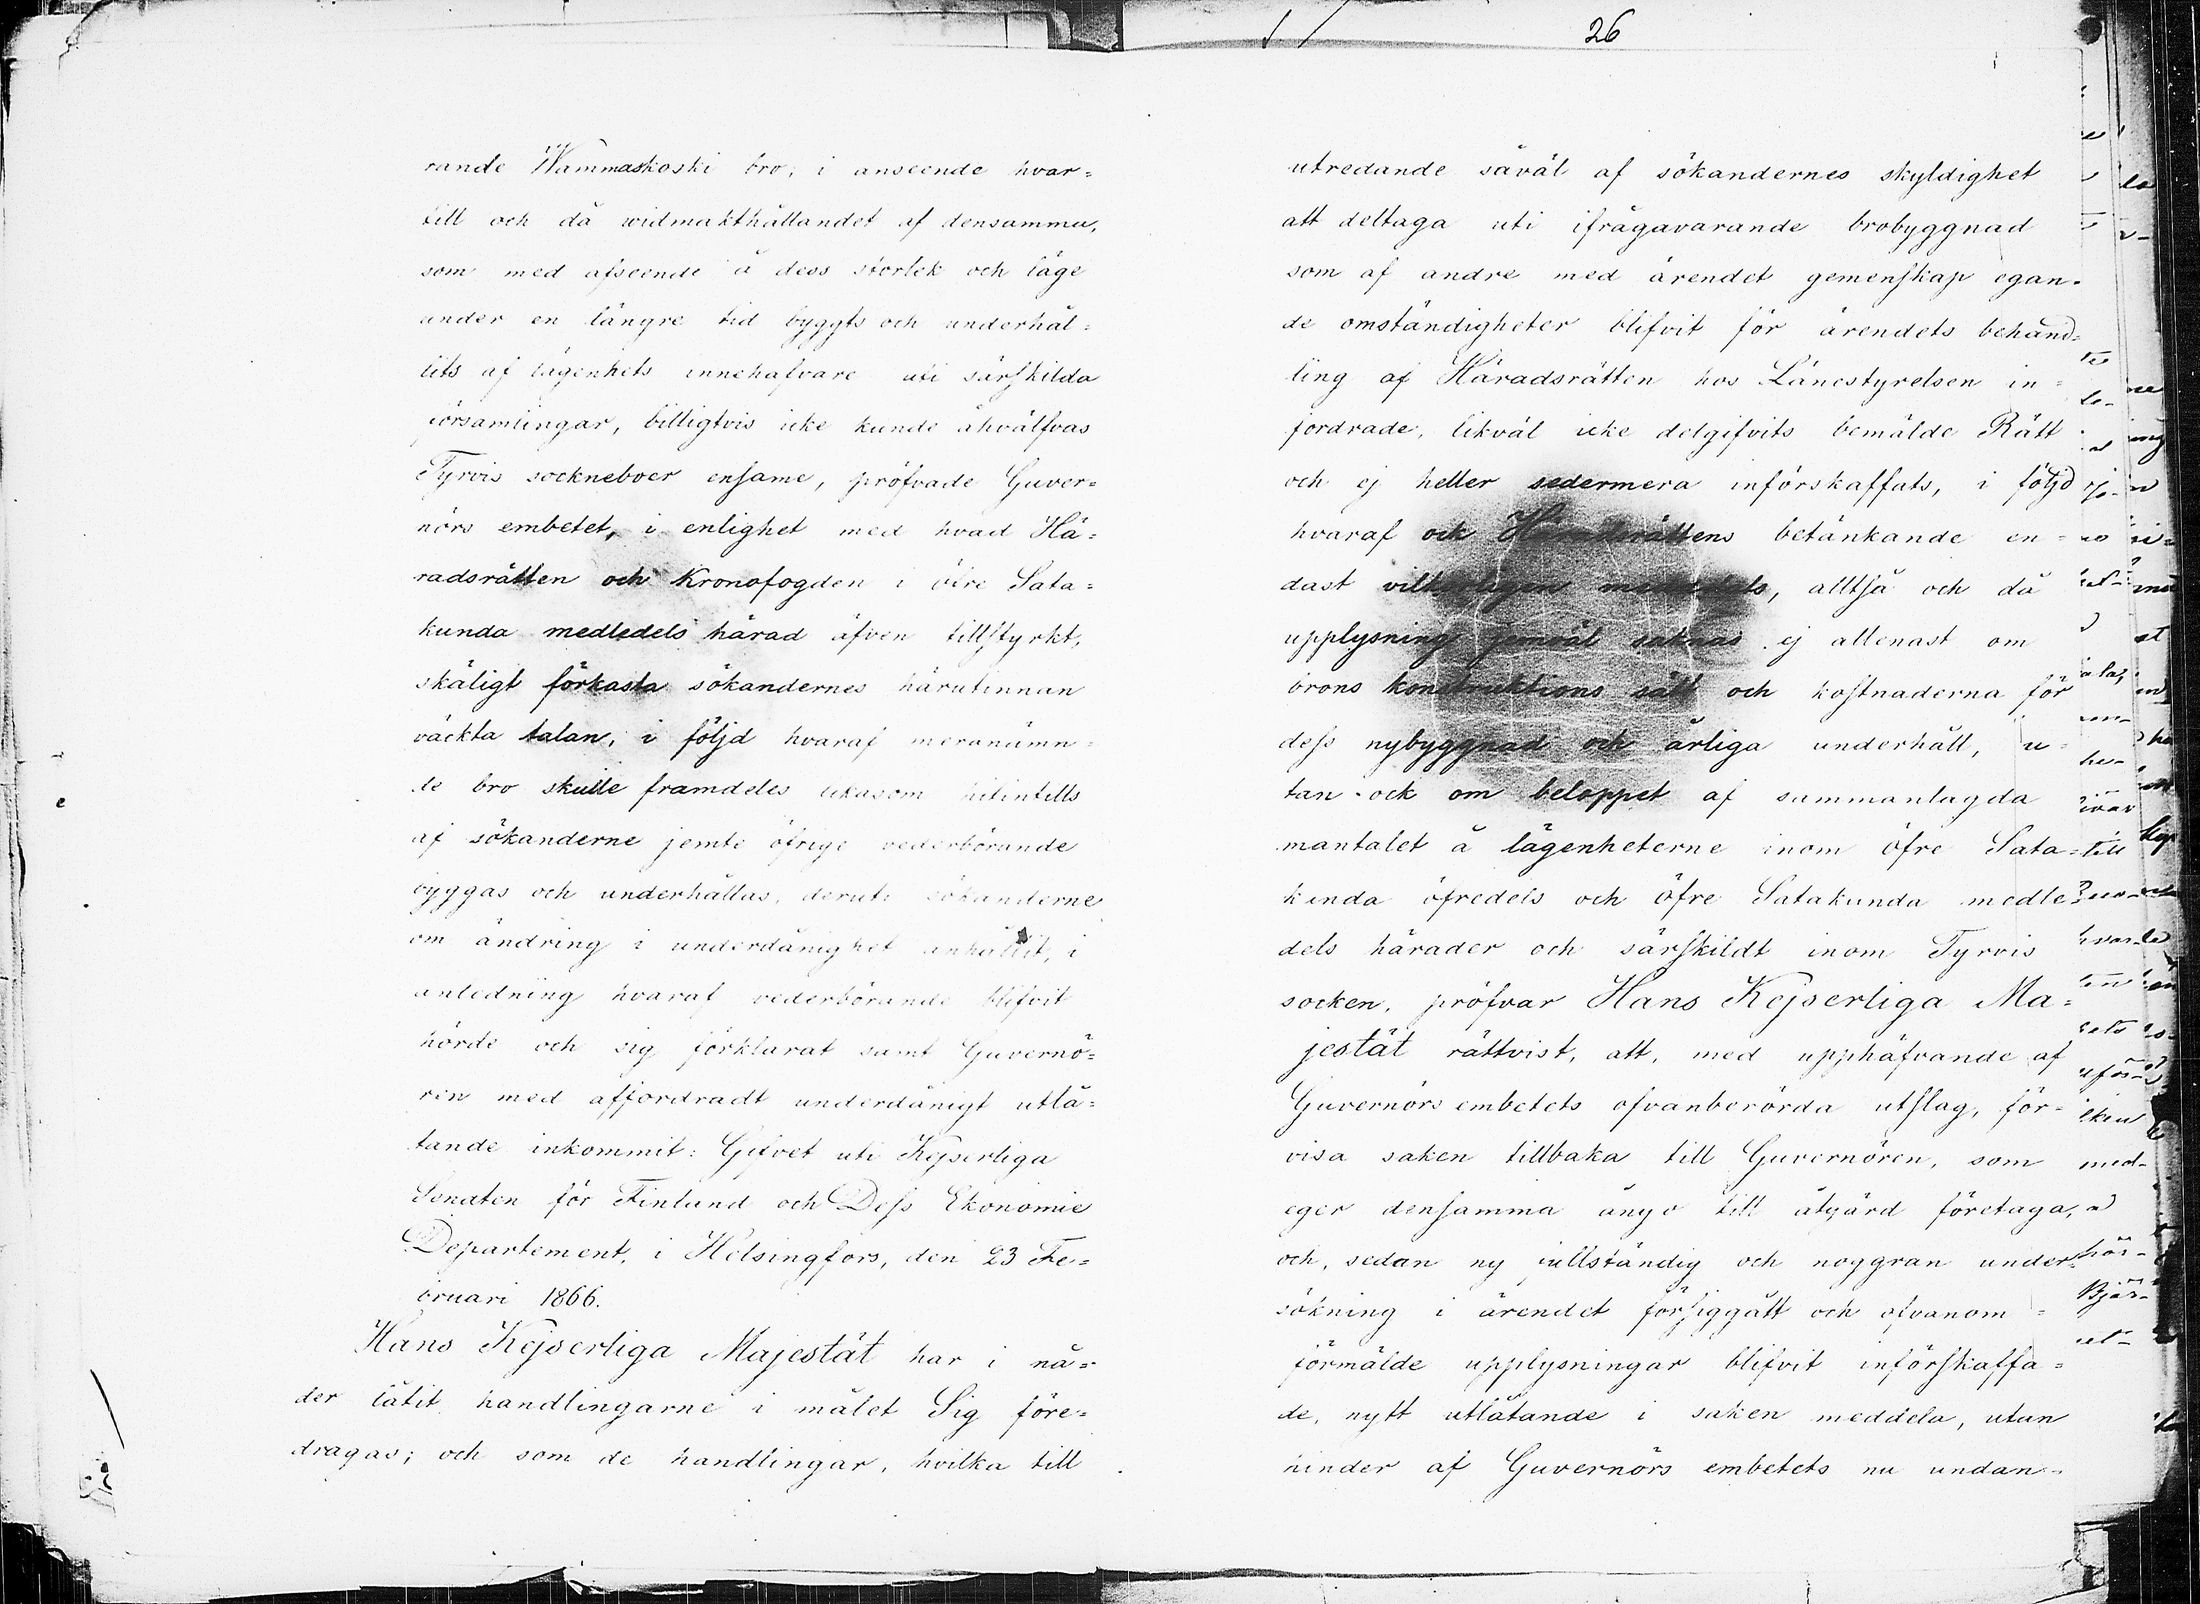 26
rande Wammaskoski bro; i anseende hvar=
till och då widmakthållandet af densamma,
som med afseende å dess storlek och läge
under en längre tid byggts och underhål=
lits af lägenhets innehafvare uti särskilda
församlingar, billigtvis icke kunde åhvälfvas
Tyrvis sockneboer ensame, pröfvade Guver=
nörs embetet, i enlighet med hvad Hä=
radsrätten och Kronofogden i öfre Sata=
kunda medledels härad äfven tillstyrkt,
skäligt förkasta sökandernes härutinnan
väckta talan, i följd hvaraf meranämn=
de bro skulle framdeles likasom hitintills
af sökanderne jemte öfrige vederbörande
byggas och underhållas, deruti sökanderne
om ändring i underdånighet anhållit, i
anledning hvaraf vederbörande blifvit
hörde och sig förklarat samt Guvernö=
ren med affordradt underdånigt utlå=
tande inkommit: Gifvet uti Kejserliga
Senaten för Finland och Dess Ekonomie
Departement, i Helsingfors, den 23 Fe=
bruari 1866.
Hans Kejserliga Majestät har i nå=
der låtit handlingarne i målet Sig före=
dragas; och som de handlingar, hvilka till
utredande såväl af sökandernes skyldighet
att deltaga uti ifrågavarande brobyggnad
som af andre med ärendet gemenskap egan=
de omständigheter blifvit för ärendets behand=
ling af Häradsrätten hos Länestyrelsen in=
fordrade, likväl icke delgifvits bemälde Rätt
och ej heller sedermera införskaffats, i följd
hvaraf ock Häradsrättens betänkande en=
dast meddelats, alltså och då
upplysning jemväl saknas ej allenast om
brons konstruktions sätt och kostnaderna för
dess nybyggnad och årliga underhåll, u=
tan ock om beloppet af sammanlagda
mantalet å lägenheterne inom öfre Sata=
kunda öfredels och öfre Satakunda medle=
dels härader och särskildt inom Tyrvis
socken, pröfvar Hans Kejserliga Ma=
jestät rättvist, att, med upphäfvande af
Guvernörs embetets ofvanberörda utslag, för=
visa saken tillbaka till Guvernören, som
eger densamma ånyo till åtgärd företaga,
och, sedan ny fullständig och noggran under=
sökning i ärendet försiggått och ofvanom=
förmälde upplysningar blifvit införskaffa=
de, nytt utlåtande i saken meddela, utan
hinder af Guvernörs embetets nu undan=